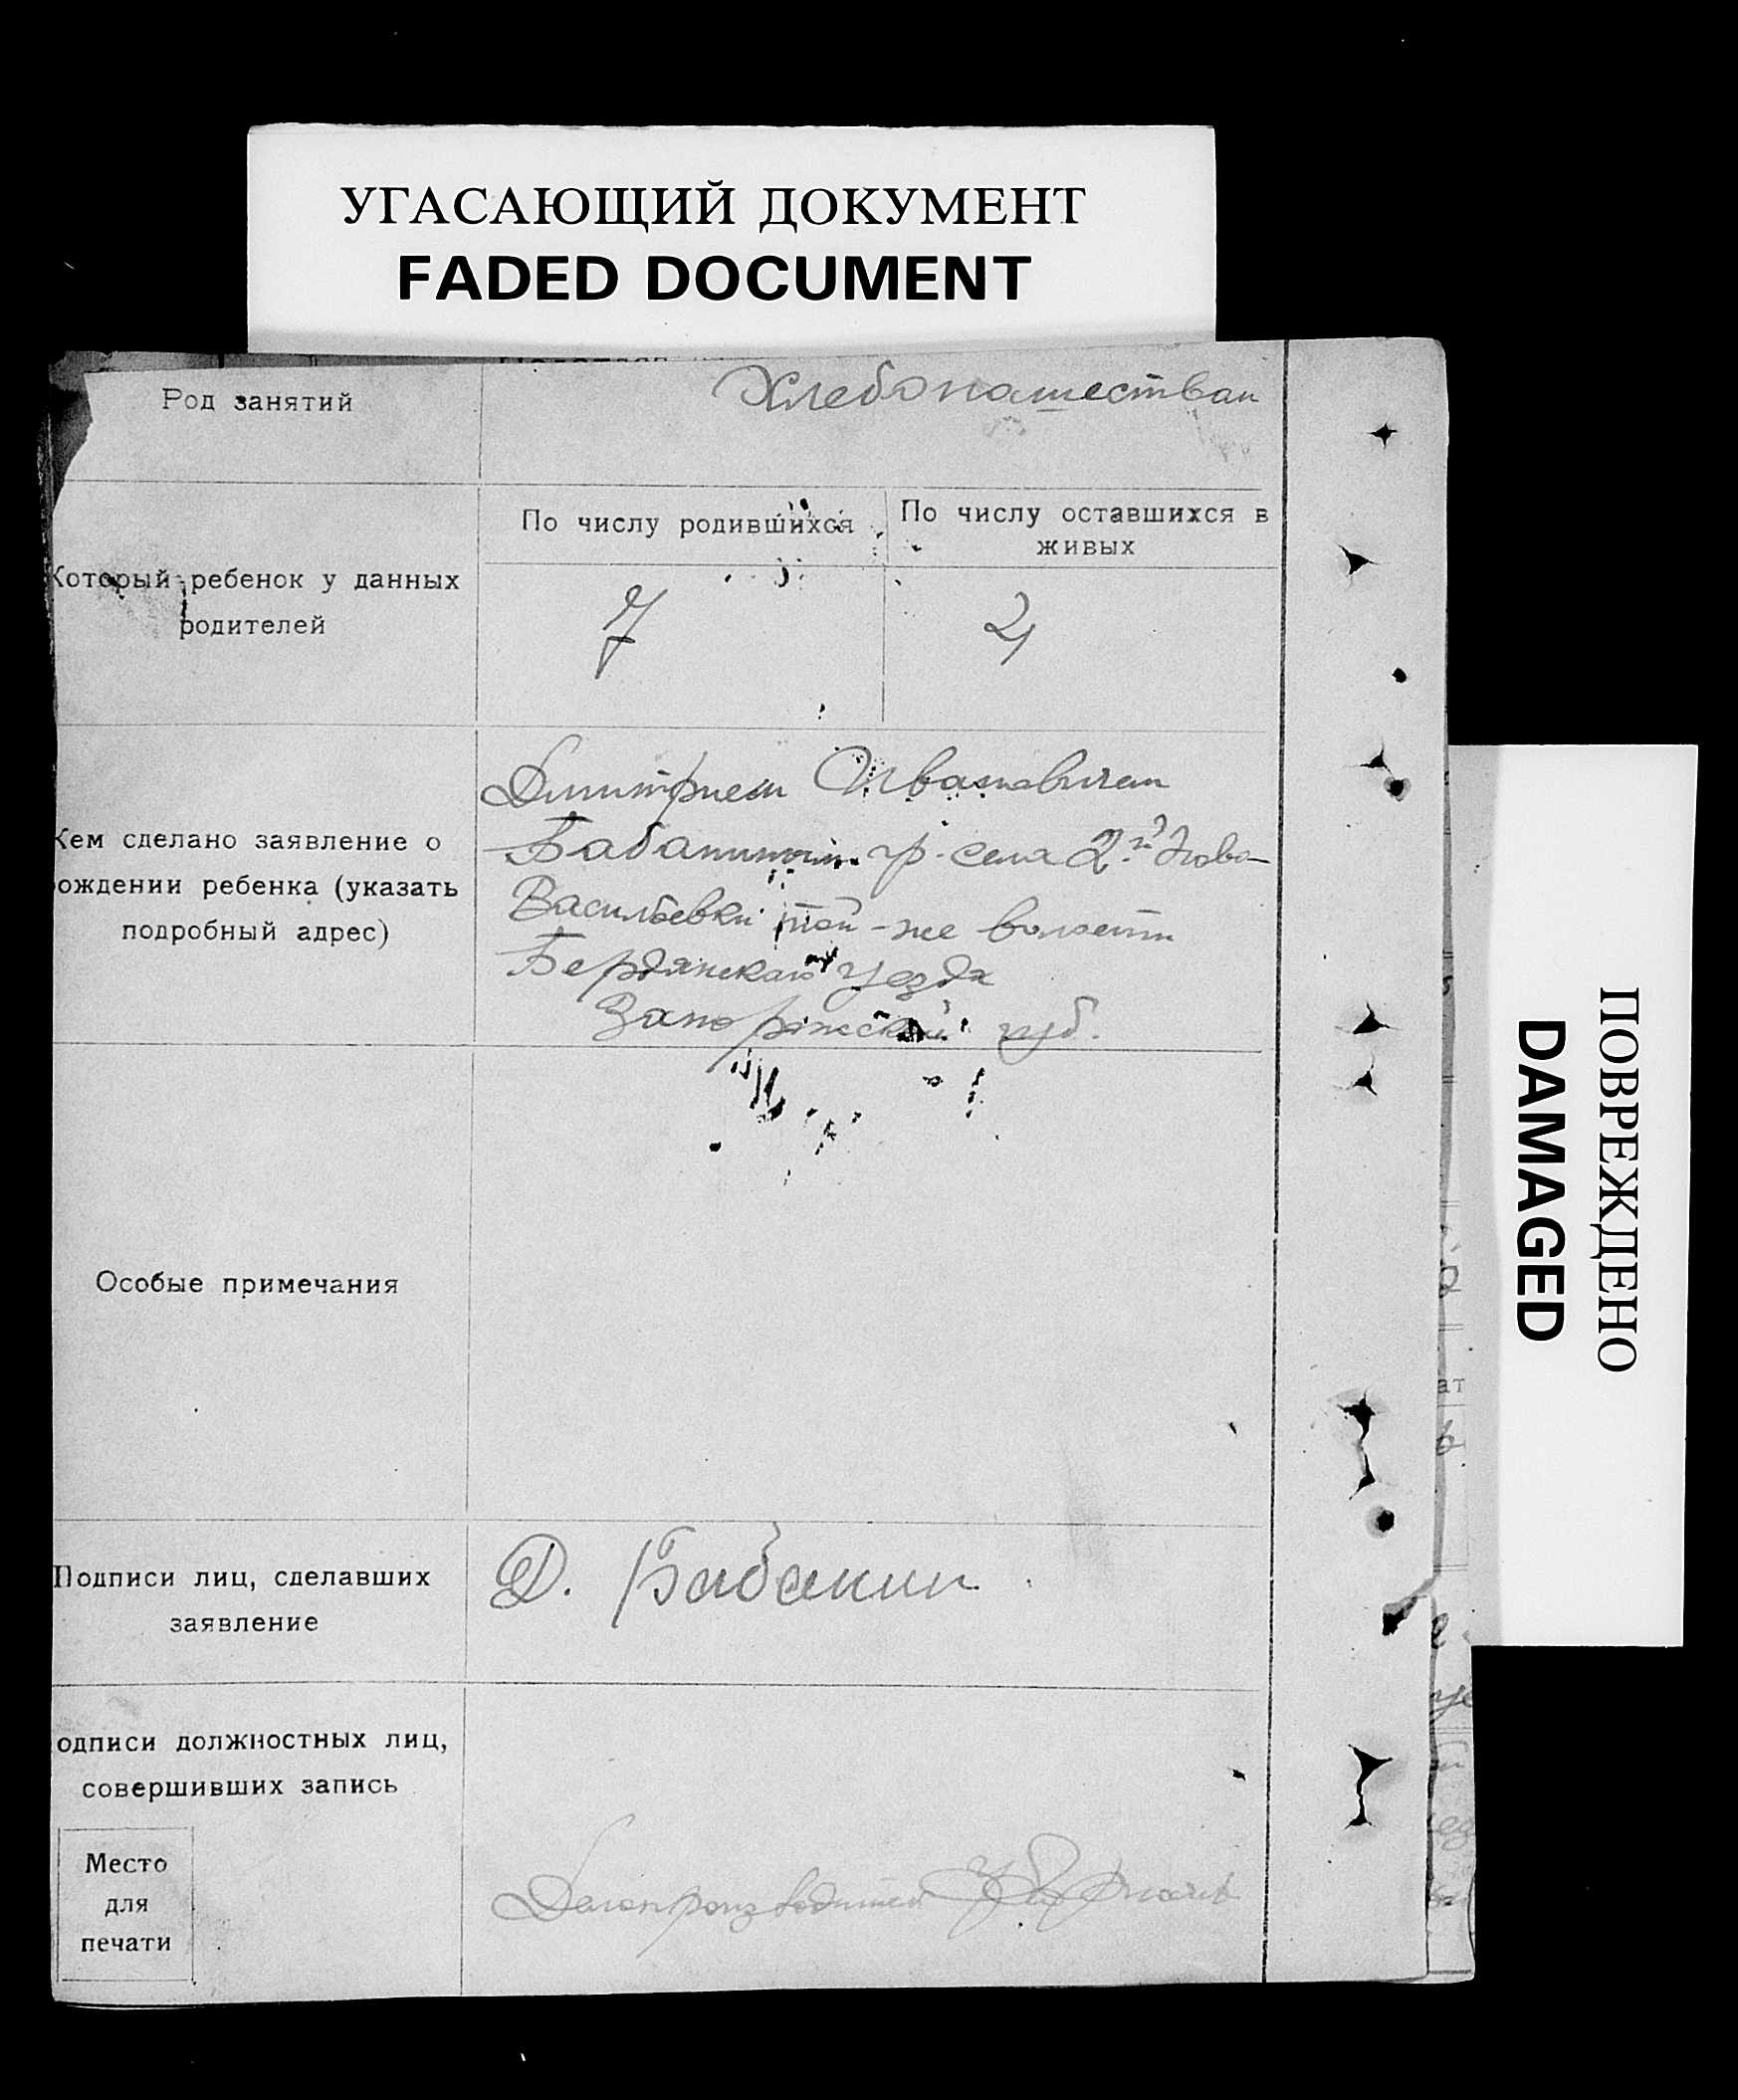 УГАСАЮЩИЙ ДОКУМЕНТ
FADED DOCUMENT
Род занятий
Хлебопашеством
Который ребенок у данных
родителей
По числу родившихся
По числу оставшихся в
живых
7
4
Кем сделано заявление о
рождении ребенка (указать
подробный адрес)
Димитрием Ивановичем
Бабаниным гр. села 2й Ново-
Васильевки той-же волости
Бердянскаго уезда
Запорожской губ.
Особые примечания
Подписи лиц, сделавших
заявление
Д. Бабанин
одписи должностных лиц,
совершивших запись
Место
для
печати
Делопроизводитель
ПОВРЕЖДЕНО
DAMAGED